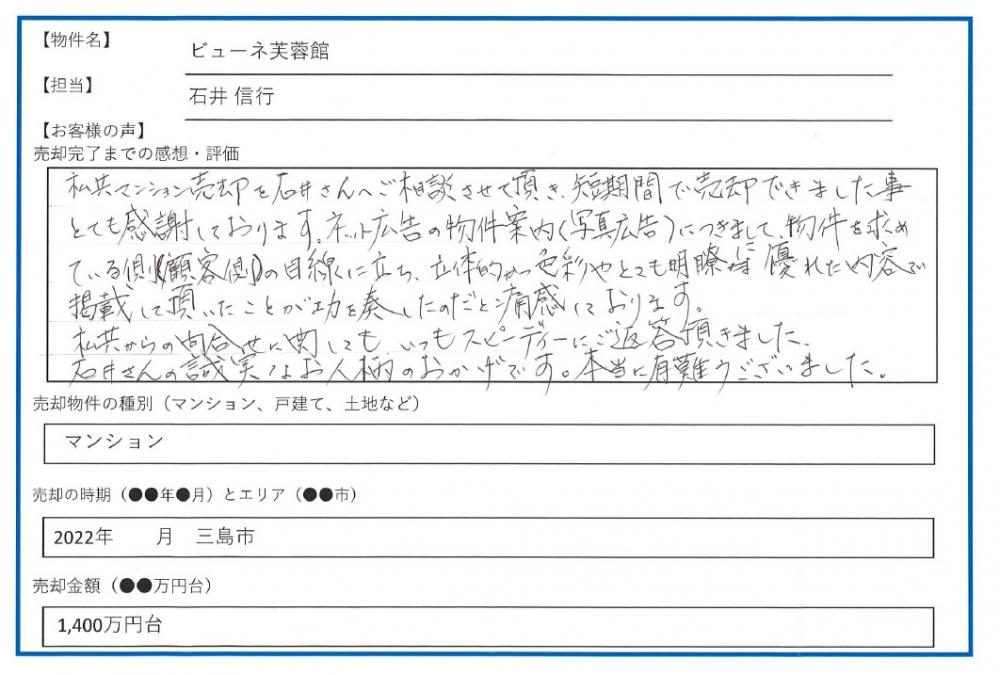 【物件名】
ビューネ芙蓉館
【担当】
石井 信行
【お客様の声】
売却完了までの感想・評価
私共マンション売却を石井さんへご相談させて頂き、短期間で売却できました事
とても感謝しております。ネット広告の物件案内(写真広告)につきまして、物件を求め
ている側(顧客側)の目線に立ち、立体的かつ色彩やとても明瞭な優れた内容で
掲載して頂いたことが功を奏したのだと痛感しております。
私共からの問合せに関しても、いつもスピーディーにご返答頂きました。
石井さんの誠実なお人柄のおかげです。本当に有難うございました。
売却物件の種別(マンション、戸建て、土地など)
マンション
売却の時期(●●年●月)とエリア(●●市)
2022年 月 三島市
売却金額(●●万円台)
1,400万円台